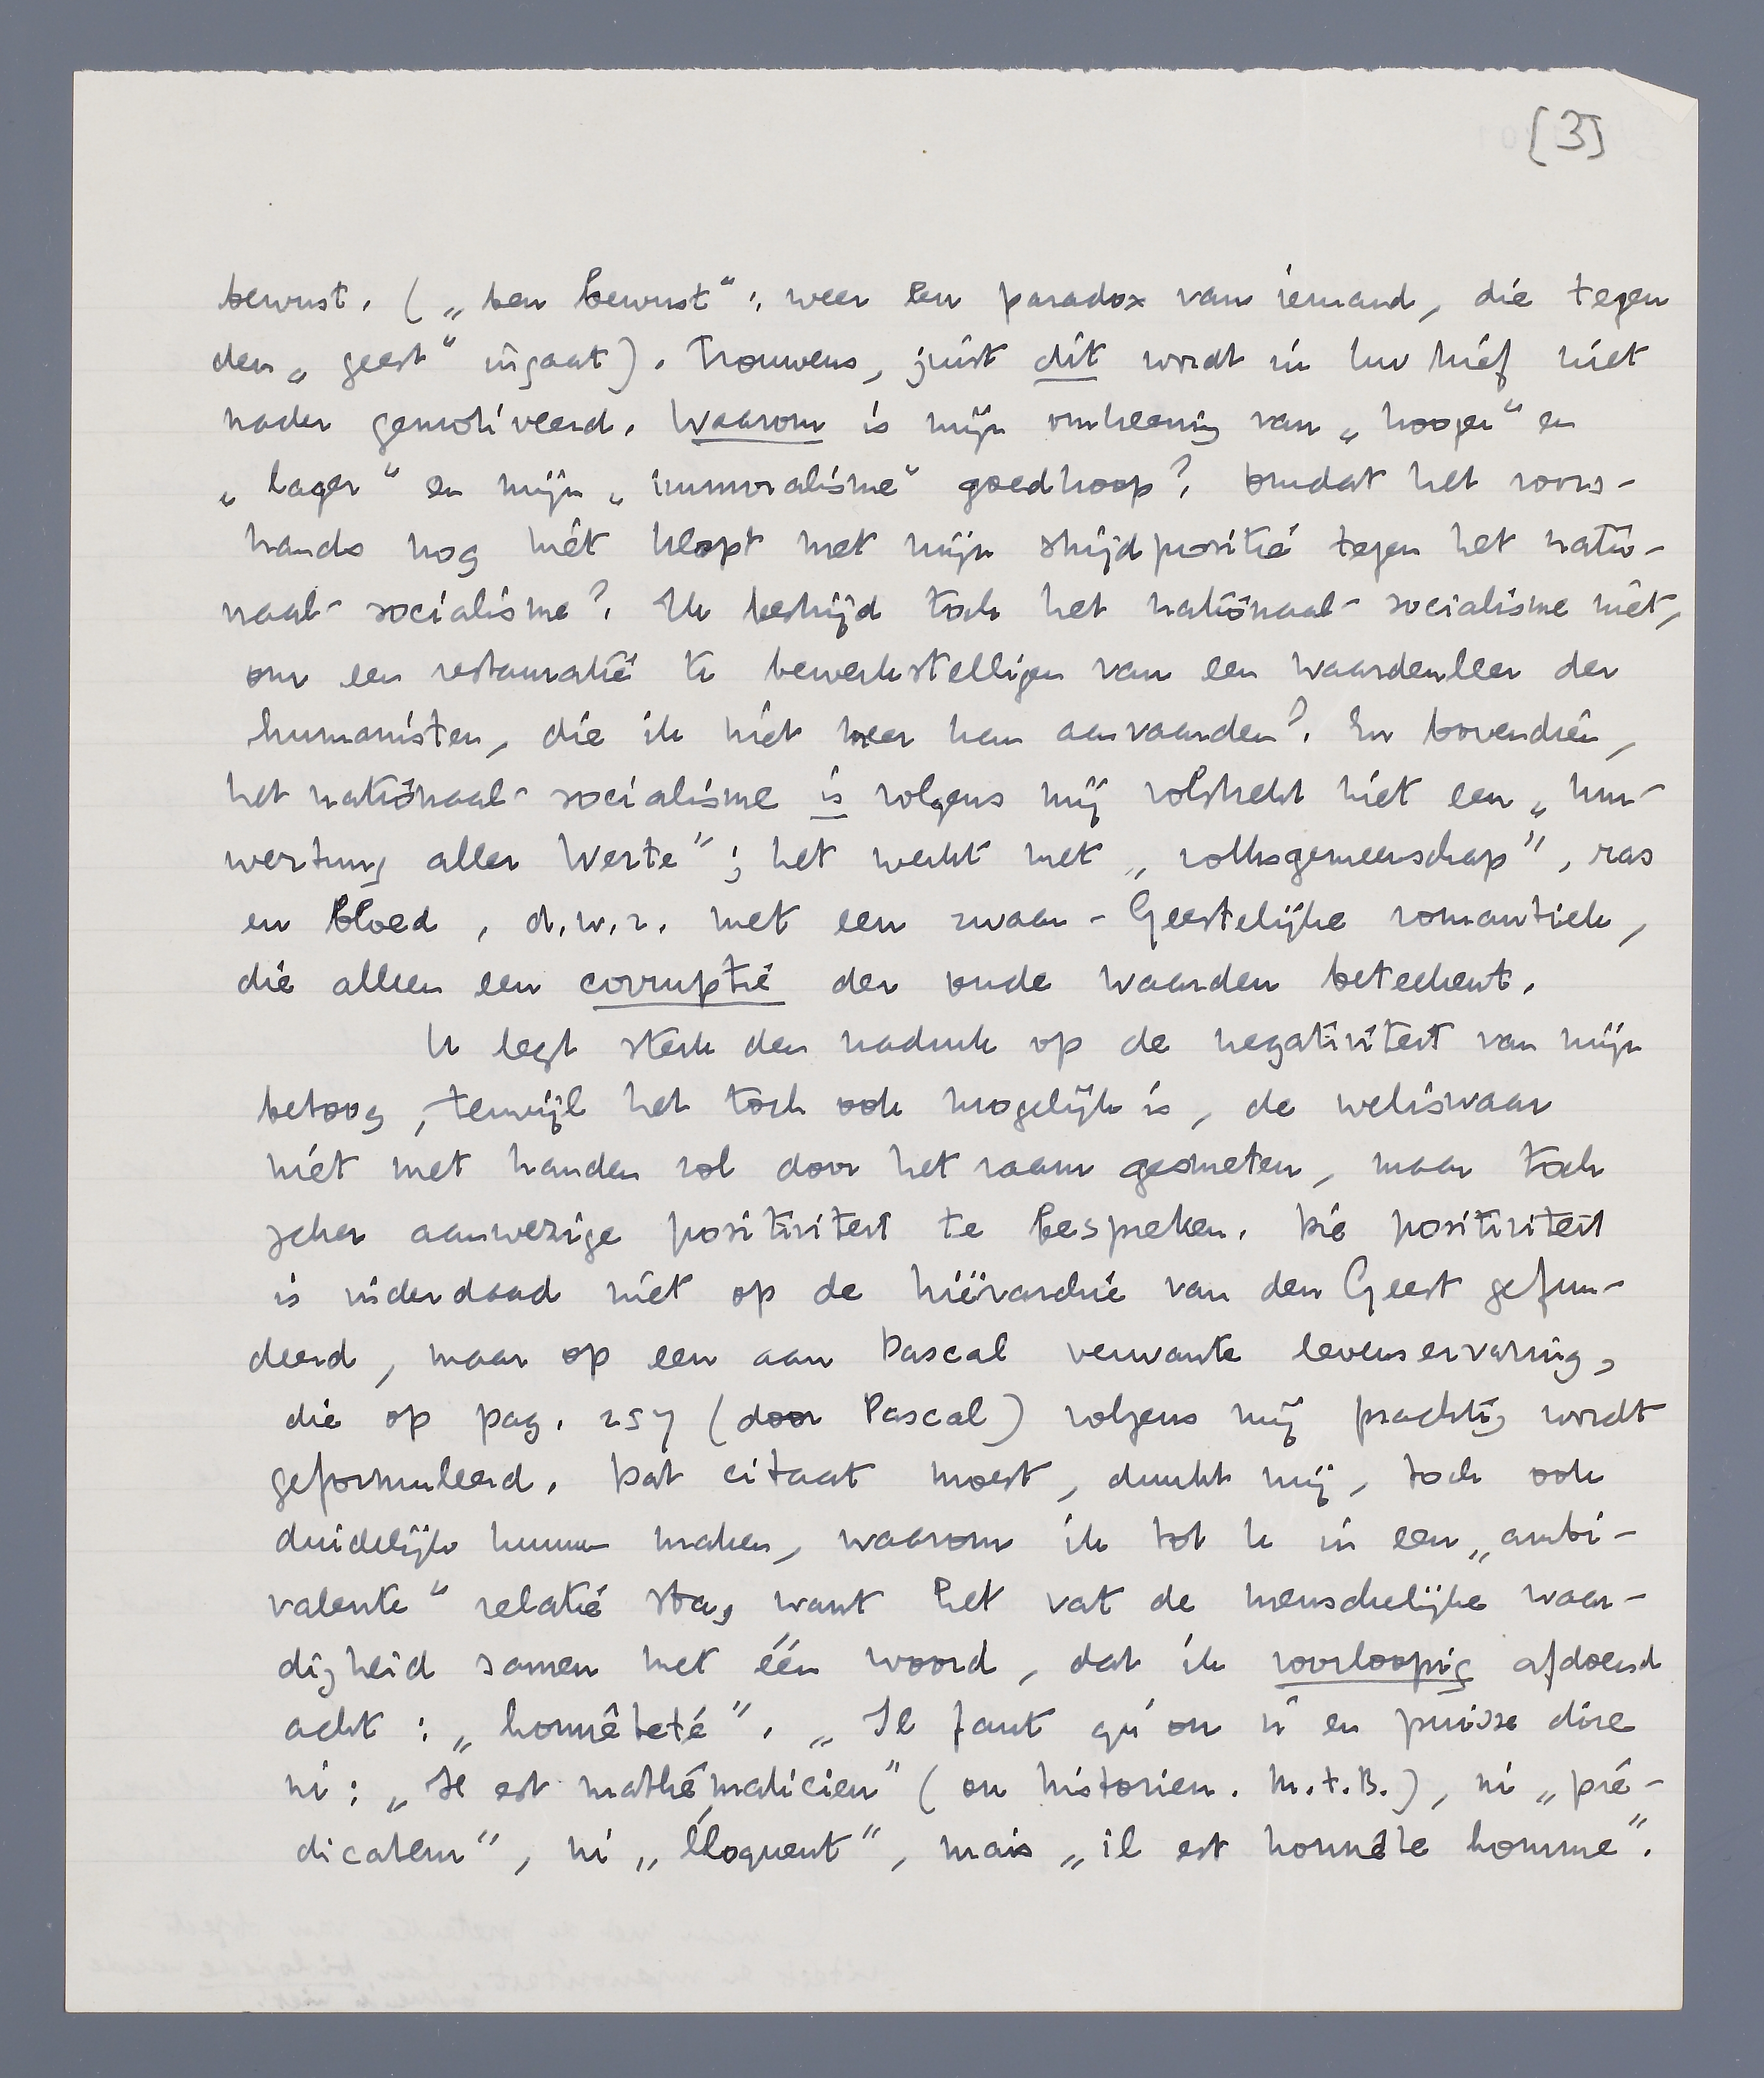 [3]
bewust. („ben bewust“: weer een paradox van iemand, die tegen
den „geest“ ingaat). Trouwens, juist dit wordt in Uw brief niet
nader gemotiveerd. Waarom is mijn omkeering van „hooger“ en
„lager“ en mijn „immoralisme“ goedkoop? Omdat het voors-
hands nog niet klopt met mijn strijdpositie tegen het natio-
naal-socialisme? Ik bestrijd toch het nationaal-socialisme niet,
om een restauratie te bewerkstelligen van een waardenleer der
humanisten, die ik niet meer kan aanvaarden? En bovendien,
het nationaal-socialisme is volgens mij volstrekt niet een „Um-
wertung aller Werte”; het werkt met „volksgemeenschap”, ras
en bloed, d.w.z. met een zwaar-Geestelijke romantiek,
die alleen een corruptie der oude waarden beteekent.
U legt sterk den nadruk op de negativiteit van mijn
betoog, terwijl het toch ook mogelijk is, de weliswaar
niet met handen vol door het raam gesmeten, maar toch
zeker aanwezige positiviteit te bespreken. Die positiviteit
is inderdaad niet op de hiërarchie van den Geest gefun-
deerd, maar op een aan Pascal verwante levenservaring,
die op pag. 257 (door Pascal) volgens mij prachtig wordt
geformuleerd. Dat citaat moest, dunkt mij, toch ook
duidelijk kunnen maken, waarom ik tot U in een „ambi-
valente“ relatie sta, want het vat de menschelijke waar-
digheid samen met één woord, dat ik voorloopig afdoend
acht: „honnêteté”. „Il faut qu'on n'en puisse dire
ni: „Il est mathématicien” (ou historien. M.t.B.), ni „pré-
dicateur”, ni „éloquent”, mais „il est honnête homme”.